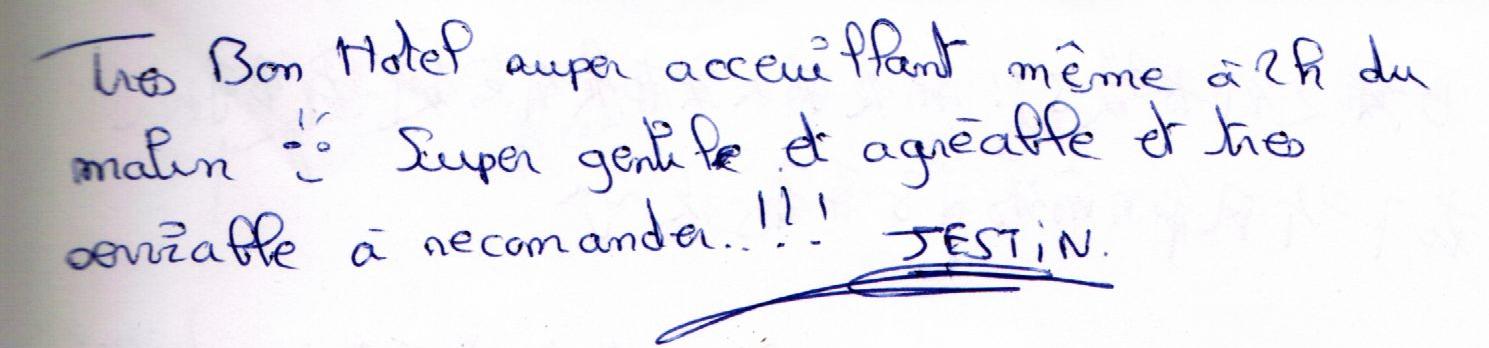 Tres Bon Hotel super acceuillant même à 2h du
matin Super gentile et agréable et tres
serviable à recomander..!!! JESTIN.